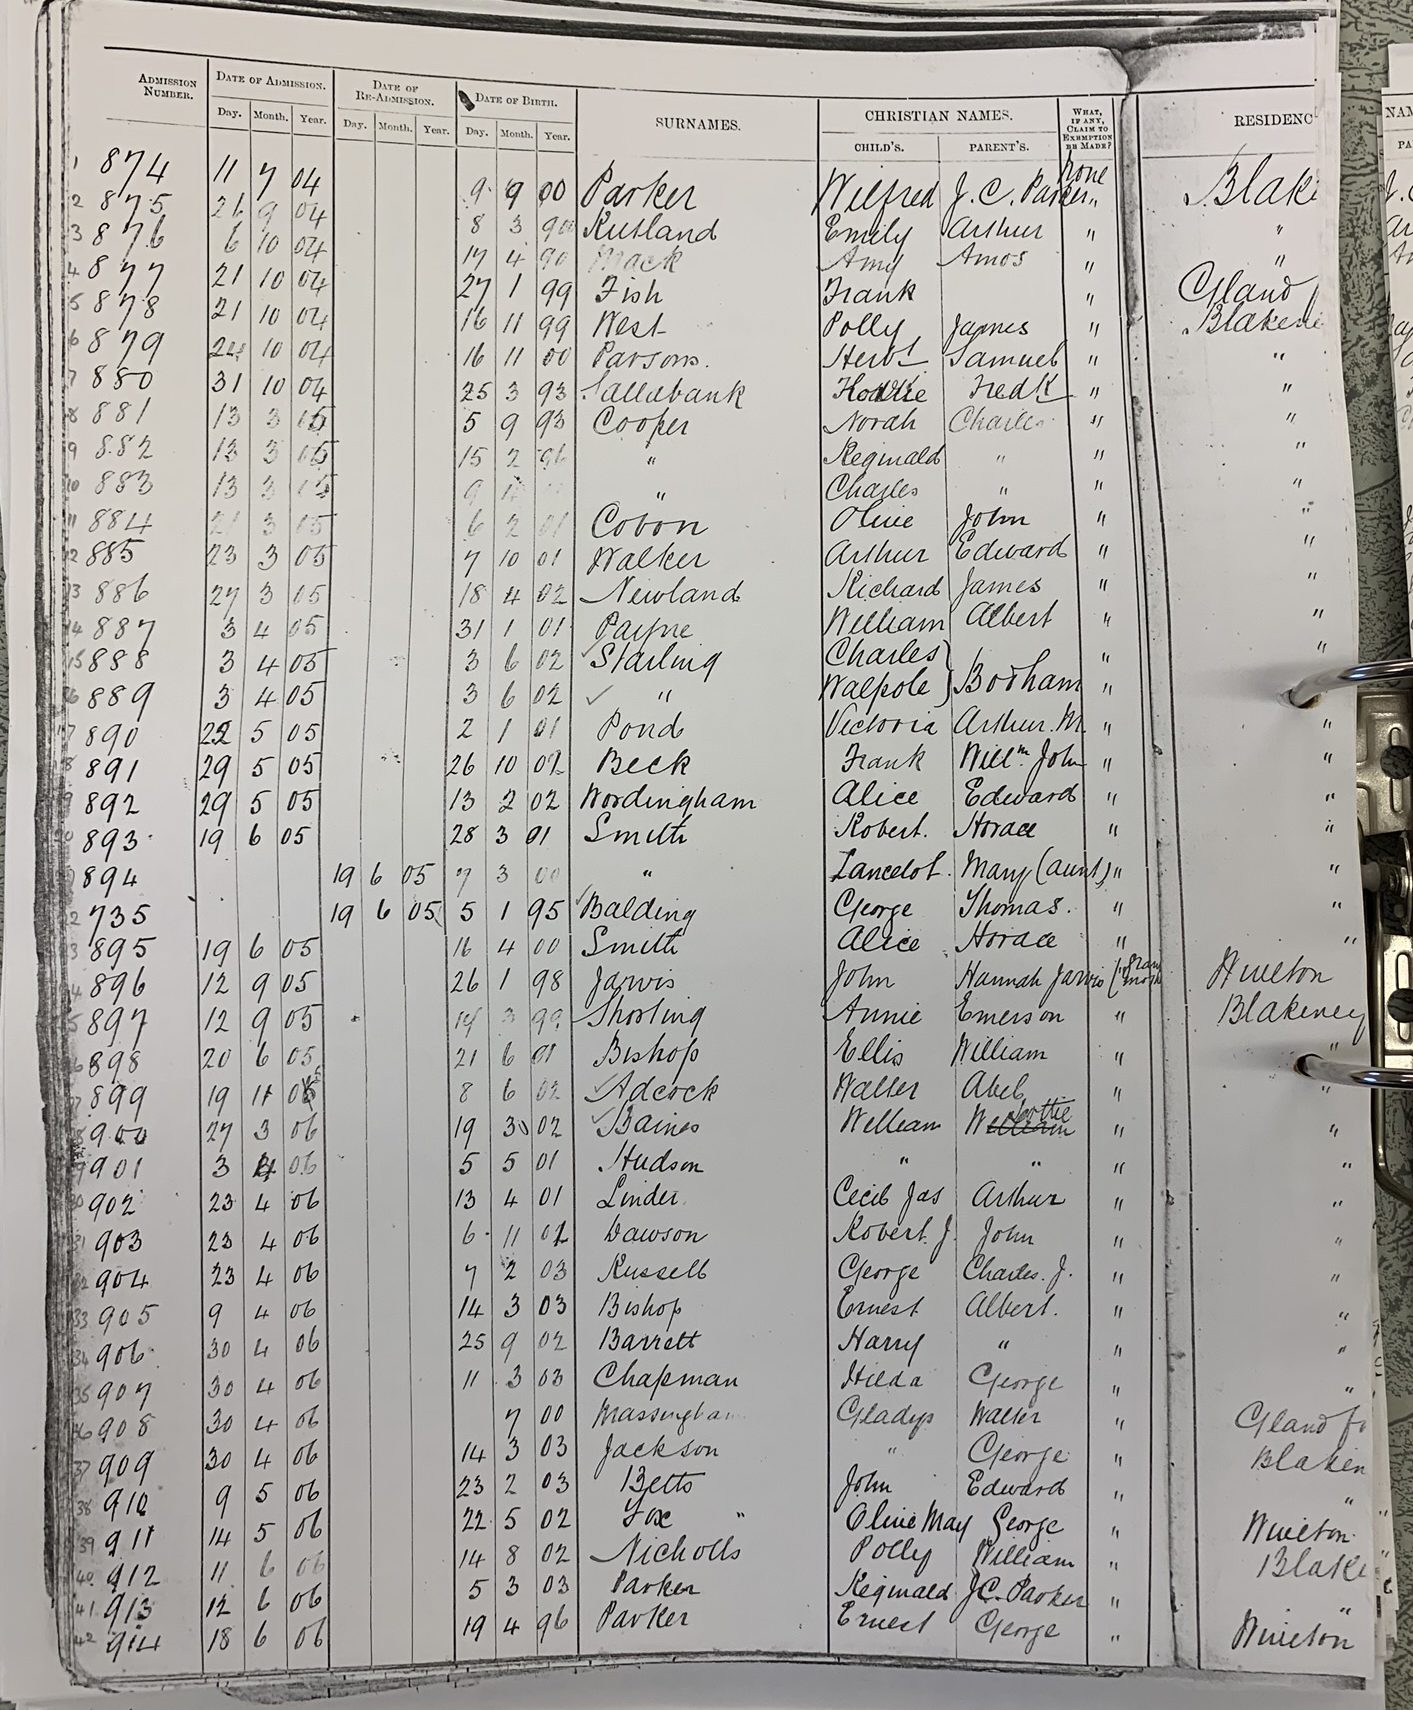 ADMISSION NUMBER. DATE OF ADMISSION. DATE OF RE-ADMISSION. DATE OF BIRTH. SURNAMES. CHRISTIAN NAMES. WHAT, IF ANY, CLAIM TO EXEMPTION BE MADE? RESIDENC
Day. Month. Year. Day. Month. Year. Day. Month. Year. CHILD'S. PARENT'S.
1 874 11 7 04 9 9 00 Parker Wilfred J. C. Parker none Blake
2 875 26 9 04 8 3 90 Rutland Emily Arthur " "
3 876 6 10 04 17 4 90 Mack Amy Amos " "
4 877 21 10 04 27 1 99 Fish Frank " Gland
5 878 21 10 04 16 11 99 West Polly James " Blakene
6 879 24 10 04 16 11 00 Parsons. Herbt Samuel " "
7 880 31 10 04 25 3 93 Sallabank Fredk " "
8 881 13 3 05 5 9 93 Cooper Norah Charles " "
9 882 13 3 05 15 2 96 " Reginald " " "
10 883 13 3 05 9 " Charles " " "
11 884 21 3 05 6 2 01 Cobon Olive John " "
12 885 23 3 05 7 10 01 Walker Arthur Edward " "
13 886 27 3 05 18 4 02 Newland Richard James " "
14 887 3 4 05 31 1 01 Payne William Albert " "
15 888 3 4 05 3 6 02 Starling Charles } " "
16 889 3 4 05 3 6 02 ✓ " Walpole } Bodham "
17 890 22 5 05 2 1 01 Pond Victoria Arthur. M. " "
18 891 29 5 05 26 10 02 Beck Frank Willm John " "
19 892 29 5 05 13 2 02 Wordingham Alice Edward " "
20 893 19 6 05 28 3 01 Smith Robert. Horace " "
21 894 19 6 05 7 3 00 " Lancelot. Mary (aunt) " "
22 735 19 6 05 5 1 95 ✓Balding George Thomas. " "
23 895 19 6 05 16 4 00 Smith Alice Horace " "
24 896 12 9 05 26 1 98 Jarvis John Hannah Jarvis (gran moth Wiveton
25 897 12 9 05 14 3 99 Shorting Annie Emerson " Blakeney
26 898 20 6 05 21 6 01 Bishop Ellis William " "
27 899 19 11 05 8 6 02 ✓Adcock Walter Abel " "
28 900 27 3 06 19 3 02 ✓Baines William William " "
29 901 3 4 06 5 5 01 Hudson " " " "
30 902 23 4 06 13 4 01 Linder Cecil Jas Arthur " "
31 903 23 4 06 6 11 02 Dawson Robert J. John " "
32 904 23 4 06 7 2 03 Russell George Charles. J. " "
33 905 9 4 06 14 3 03 Bishop Ernest Albert. " "
34 906 30 4 06 25 9 02 Barrett Harry " " "
35 907 30 4 06 11 3 03 Chapman Hilda George " "
36 908 30 4 06 7 00 Massingham Gladys Walter " Gland fo
37 909 30 4 06 14 3 03 Jackson " George " Blaken
38 910 9 5 06 23 2 03 Betts John Edward " "
39 911 14 5 06 22 5 02 Fox " Olive May George " Wiveton
40 912 11 6 06 14 8 02 Nicholls Polly William " Blake
41 913 12 6 06 5 3 03 Parker Reginald J.C. Parker " "
42 914 18 6 06 19 4 96 Parker Ernest George " Wiveton